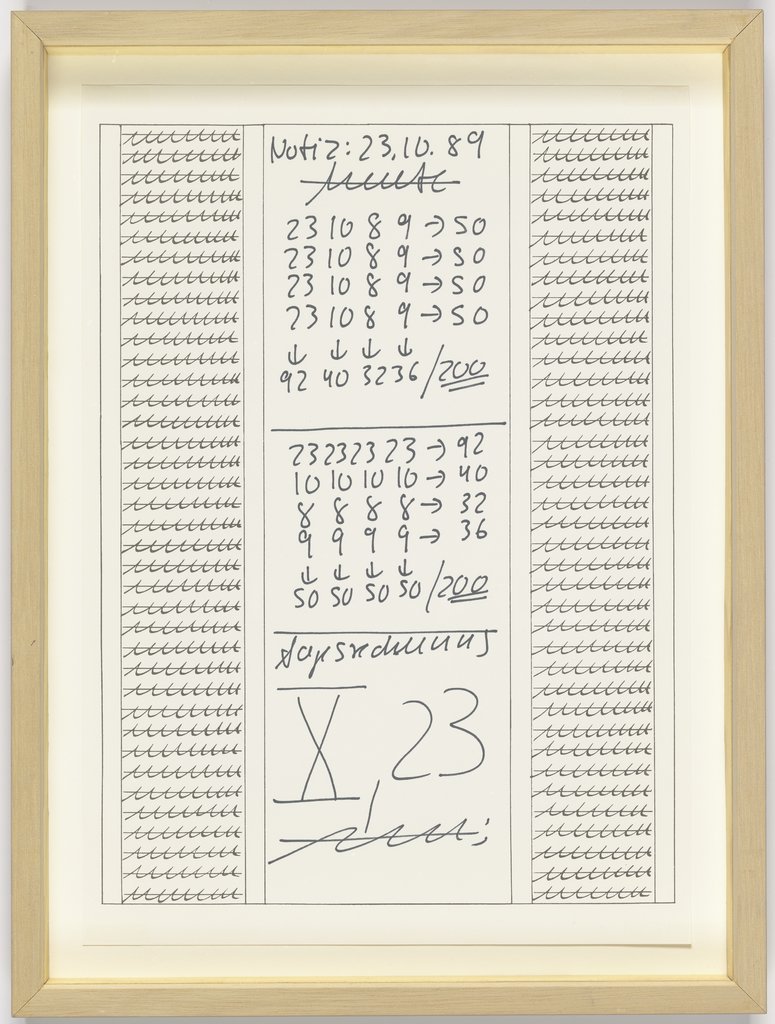 Notiz: 23.10.89
heute
23 10 8 9 → 50
23 10 8 9 → 50
23 10 8 9 → 50
23 10 8 9 → 50
↓ ↓ ↓ ↓
92 40 32 36 / 200
23 23 23 23 → 92
10 10 10 10 → 40
8 8 8 8 → 32
9 9 9 9 → 36
↓ ↓ ↓ ↓
50 50 50 50 / 200
tagesrechnung
X, 23